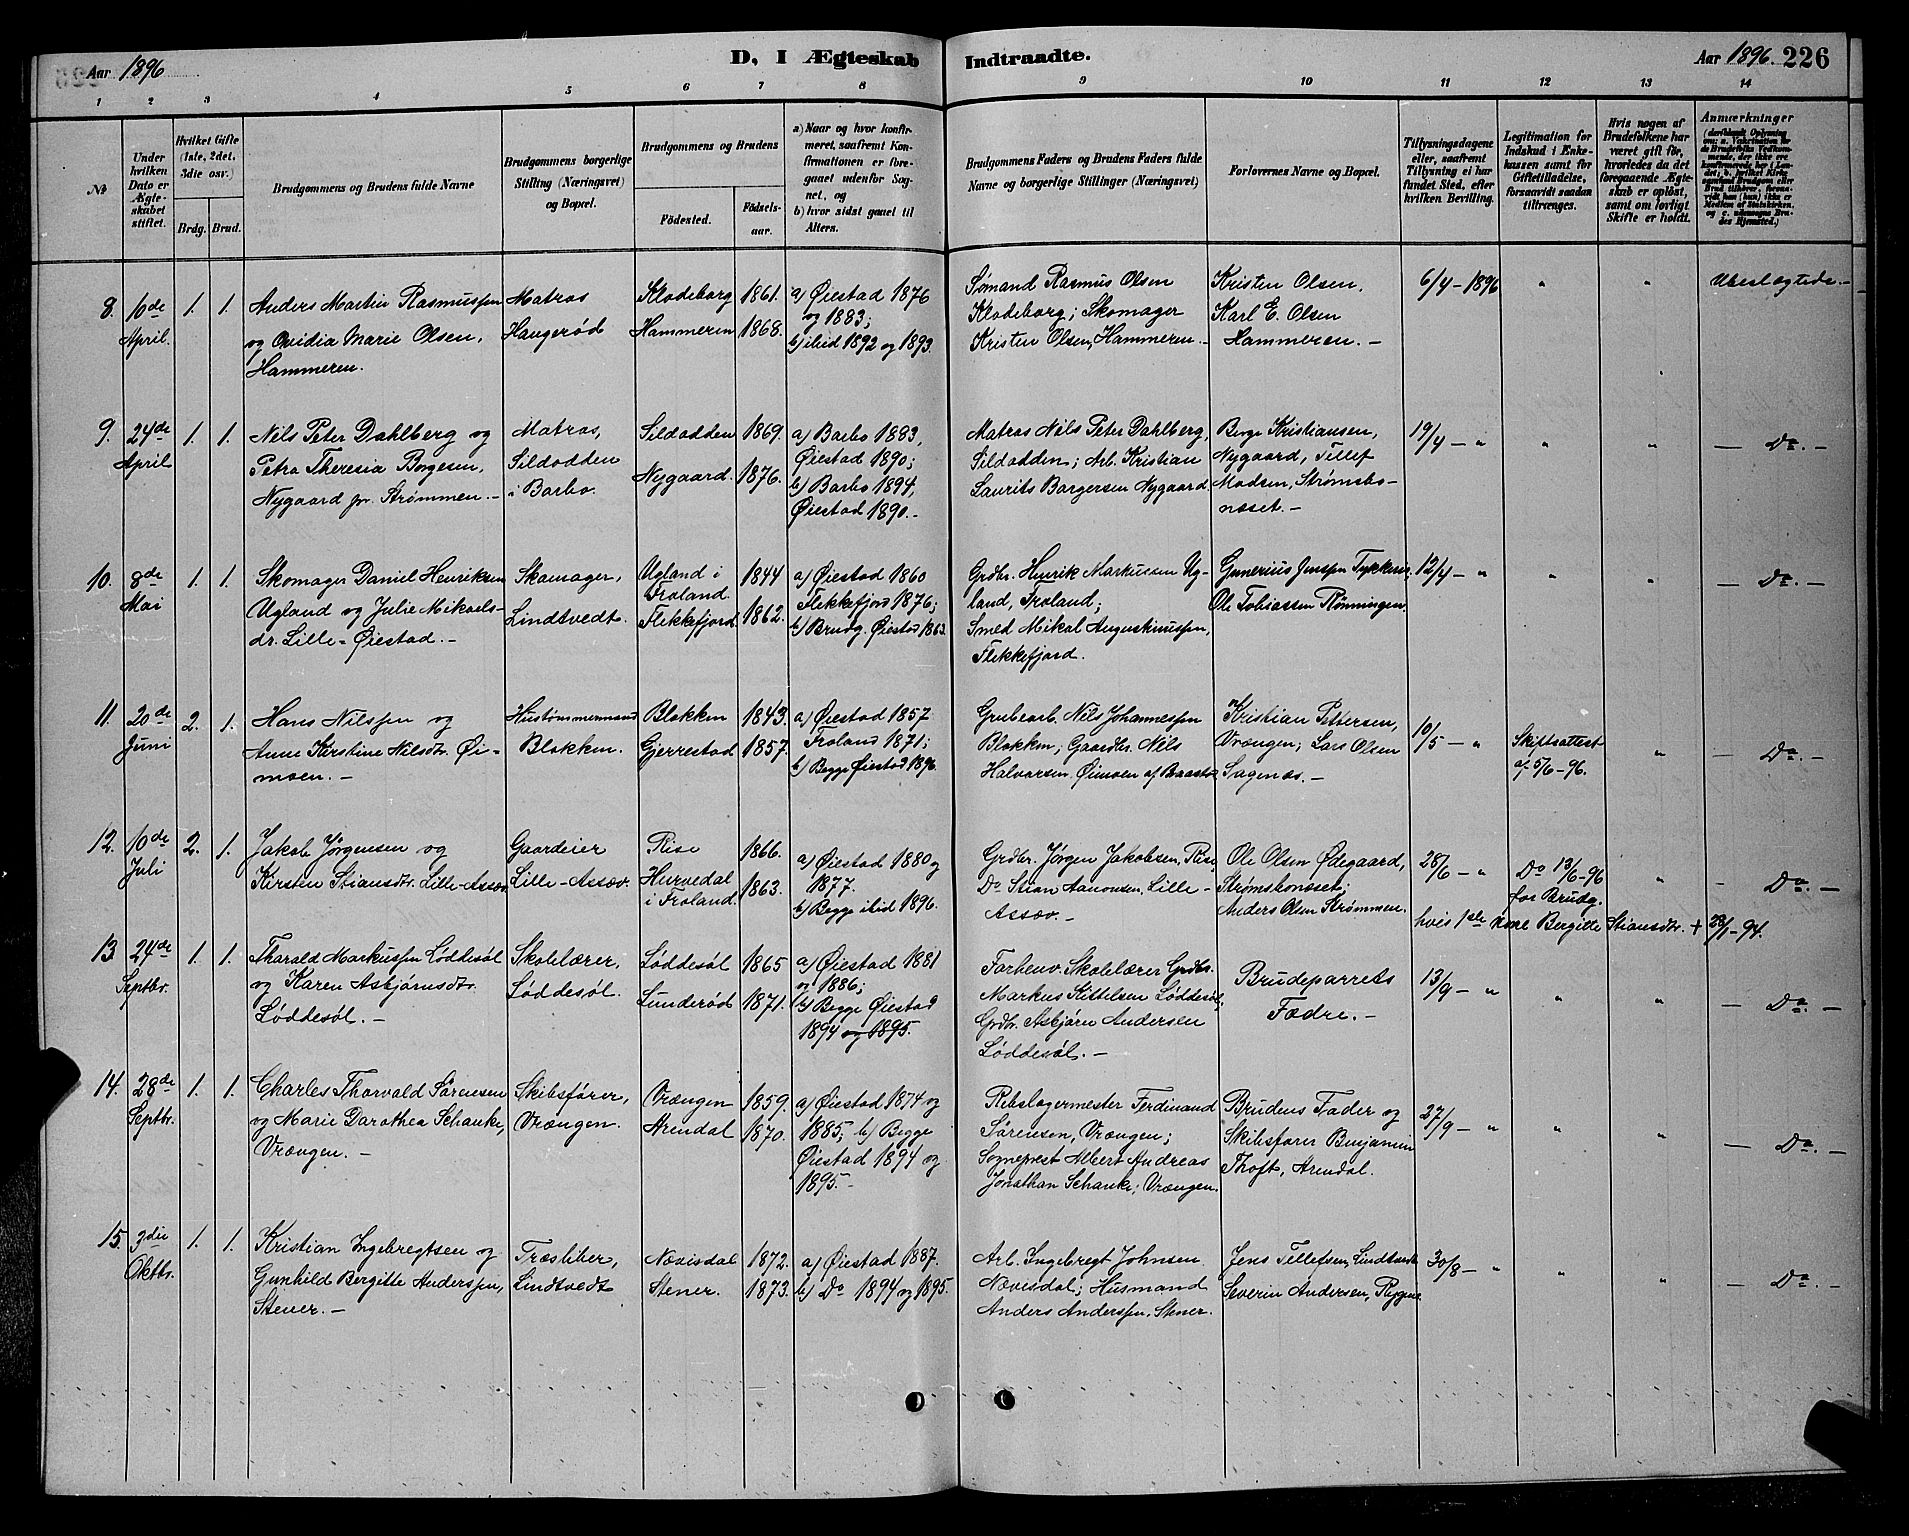 Aar 1896
D, I Ægteskab Indtraadte.
Aar 1896. 226
1 2 3 4 5 6 7 8 9 10 11 12 13 14
№
Under hvilken Dato er Ægteskabet stiftet.
Hvilket Gifte (1ste, 2det, 3die osv.)
Brdg. Brud.
Brudgommens og Brudens fulde Navne
Brudgommens borgerlige Stilling (Næringsvei) og Bopæl.
Brudgommens og Brudens
Fødested.
Fødselsaar.
a) Naar og hvor konfirmeret, saafremt Konfirmationen er foregaaet udenfor Sognet, og
b) hvor sidst gaaet til Alters.
Brudgommens Faders og Brudens Faders fulde Navne og borgerlige Stillinger (Næringsvei)
Forlovernes Navne og Bopæl.
Tillysningsdagene eller, saafremt Tillysning ei har fundet Sted, efter hvilken Bevilling.
Legitimation for Indskud i Enkekassen samt for Giftetilladelse, forsaavidt saadan tiltrænges.
Hvis nogen af Brudefolkene har været gift før, hvorledes da det foregaaende Ægteskab er opløst, samt om lovligt Skifte er holdt.
Anmærkninger
8. 10de April. 1. 1.
Anders Martin Rasmussen
og Ovidia Marie Olsen,
Hammeren.
Matros
Haugerød
Klodeborg 1861.
Hammeren 1868.
a) Øiestad 1876
og 1883;
b) ibid 1892 og 1893.
Sømand Rasmus Olsen
Klodeborg; Skomager
Kristen Olsen, Hammeren.-
Kristen Olsen,
Karl E. Olsen
Hammeren.-
6/4-1896 " " Ubeslægtede.-
9. 24de April 1. 1.
Nils Peter Dahlberg og
Petra Theresia Borgesen,
Nygaard pr. Strømmen.-
Matros,
Sildodden
i Barbo.
Sildodden 1869.
Nygaard. 1876.
a) Barbo 1883,
Øiestad 1890;
b) Barbo 1894,
Øiestad 1890.-
Matros Nils Peter Dahlberg,
Sildodden; Arb. Kristian
Laurits Borgersen Nygaard.
Berge Kristiansen,
Nygaard, Tillef
Madsen, Strømsbo-
næset.-
19/4-" " " - Do.-
10. 8de Mai 1. 1.
Skomager Daniel Henriksen
Ugland og Julie Mikaels-
dr. Lille-Øiestad.-
Skomager,
Lindtvedt.
Ugland i
Froland 1844
Flekkefjord 1862.
a) Øiestad 1860
Flekkefjord 1876;
b) Brudg. Øiestad 1863.
Grdbr. Henrik Markussen Ug-
land, Froland;
Smed Mikal Augustinussen,
Flekkefjord.
Gunerius Jenssen
Ole Tobiassen Rønningen.
12/4-" " " - Do.-
11. 20de Juni 2. 1.
Hans Nilssen og
Anne Kirstine Nilsdtr. Øi-
moen.-
Hustømmermand
Blokken.
Blokken 1843.
Gjerrestad 1857.
a) Øiestad 1857
Froland 1871;
b) Begge Øiestad 1896.
Grubearb. Nils Johannessen
Blokken; Gaardbr. Nils
Halvorsen Øimoen af
Kristian Pettersen,
Vrængen; Lars Olsen
Sagenæs.-
10/5-" Skiftsattest
af 5/6-96. " - Do.-
12. 10de Juli 2. 1.
Jakob Jørgensen og
Kirsten Stiansdtr. Lille-Assæv.
Gaardeier
Lille-Assæv.
Rise 1866.
Hurvedal
i Froland. 1863.
a) Øiestad 1880 og
1877.
b) Begge ibid 1896.
Grdbr. Jørgen Jakobsen, Rise,
Do Stian Aanonsen, Lille-
Assæv.-
Ole Olsen Ødegaard,
Strømsbonæset;
Anders Olsen Strømmen.
28/6-" Do 13/6-96
for Brudg. " - Do.-
hvis 1ste Kone Bergitte Stiansdtr. + 28/1-94.
13. 24de Septbr. 1. 1.
Tharald Markussen Løddesøl
og Karen Asbjørnsdtr.
Løddesøl.-
Skolelærer,
Løddesøl.
Løddesøl 1865
Lunderød 1871.
a) Øiestad 1881
og 1886;
b) Begge Øiestad
1894 og 1895.
Forhenv. Skolelærer Grdbr.
Markus Kittelsen Løddesøl,
Grdbr. Asbjørn Andersen
Løddesøl.-
Brudeparrets
Fædre.-
13/9-" " " - Do.-
14. 28de Septbr. 1. 1.
Charles Thorvald Sørensen
og Marie Dorothea Schanke,
Vrængen.-
Skibsfører,
Vrængen.
Vrængen 1859.
Arendal 1870.
a) Øiestad 1874 og
1885; b) Begge
Øiestad 1894 og
1895.-
Rebslagermester Ferdinand
Sørensen, Vrængen;
Sogneprest Albert Andreas
Jonathan Schanke, Vrængen.
Brudens Fader og
Skibsfører Benjamin
Thoft, Arendal.
27/9-" " " - Do.-
15. 3die Oktbr. 1. 1.
Kristian Ingebregtsen og
Gunhild Bergitte Anderssen,
Stener.-
Træsliber,
Lindtvedt
Nævisdal 1872.
Stener. 1873.
a) Øiestad 1887.
b) Do 1894 og 1895.
Arb. Ingebregt Johnsen
Nævisdal; Husmand
Anders Anderssen, Stener.
Jens Tillefsen, Lindtvedt
Severin Andersen,
30/8-" " " - Do.-